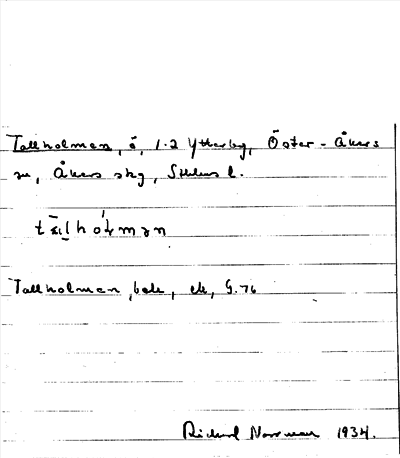 Tallholmen, ö, 1.2 Ytterby, Öster-Åkers
sn, Åkers skg, Sthlms l.
Tallholmen, bek, ek, G.76
Richard Norrman 1934.